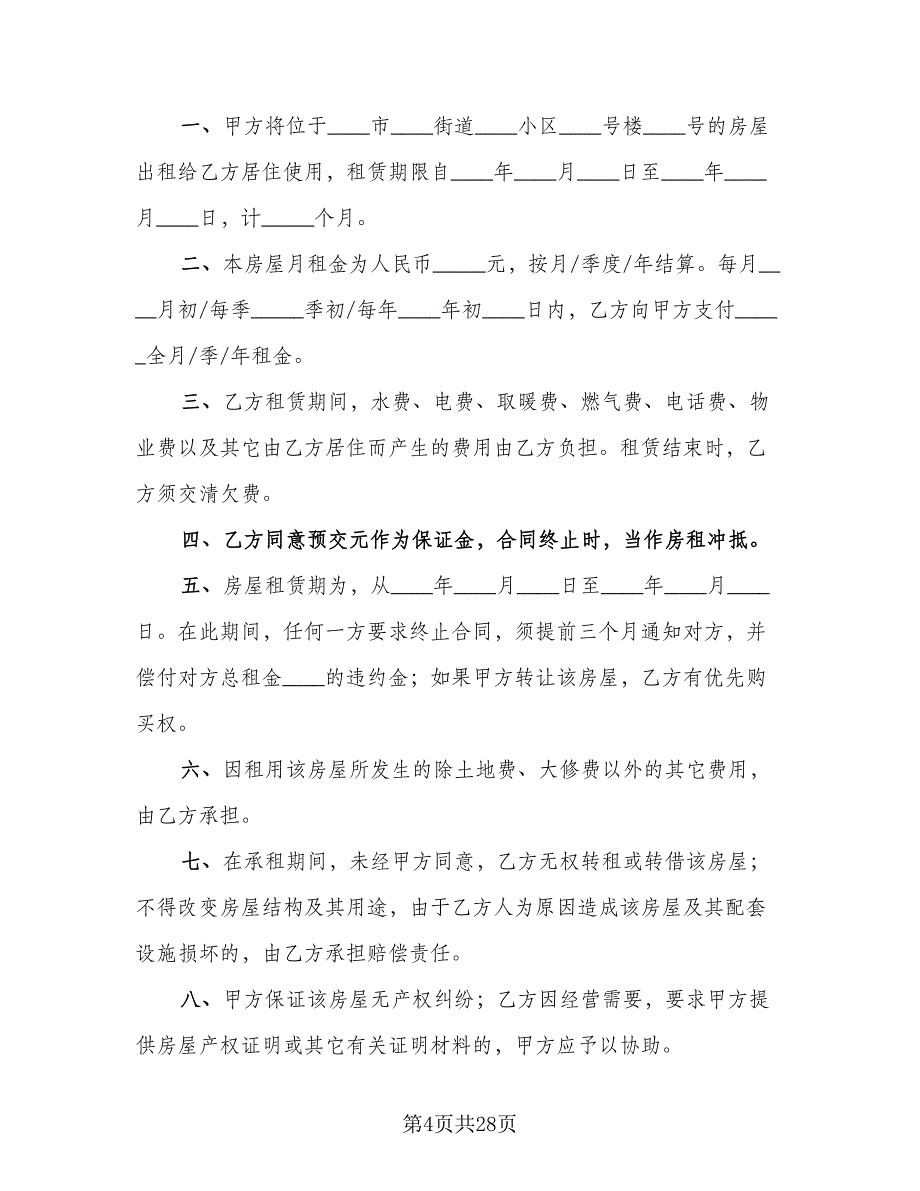 一、甲方将位于____市____街道____小区____号楼____号的房屋
出租给乙方居住使用，租赁期限自____年____月____日至____年____
月____日，计_____个月。
二、本房屋月租金为人民币_____元，按月/季度/年结算。每月__
__月初/每季_____季初/每年____年初____日内，乙方向甲方支付____
_全月/季/年租金。
三、乙方租赁期间，水费、电费、取暖费、燃气费、电话费、物
业费以及其它由乙方居住而产生的费用由乙方负担。租赁结束时，乙
方须交清欠费。
四、乙方同意预交元作为保证金，合同终止时，当作房租冲抵。
五、房屋租赁期为，从____年____月____日至____年____月____
日。在此期间，任何一方要求终止合同，须提前三个月通知对方，并
偿付对方总租金____的违约金；如果甲方转让该房屋，乙方有优先购
买权。
六、因租用该房屋所发生的除土地费、大修费以外的其它费用，
由乙方承担。
七、在承租期间，未经甲方同意，乙方无权转租或转借该房屋；
不得改变房屋结构及其用途，由于乙方人为原因造成该房屋及其配套
设施损坏的，由乙方承担赔偿责任。
八、甲方保证该房屋无产权纠纷；乙方因经营需要，要求甲方提
供房屋产权证明或其它有关证明材料的，甲方应予以协助。
第4页共28页